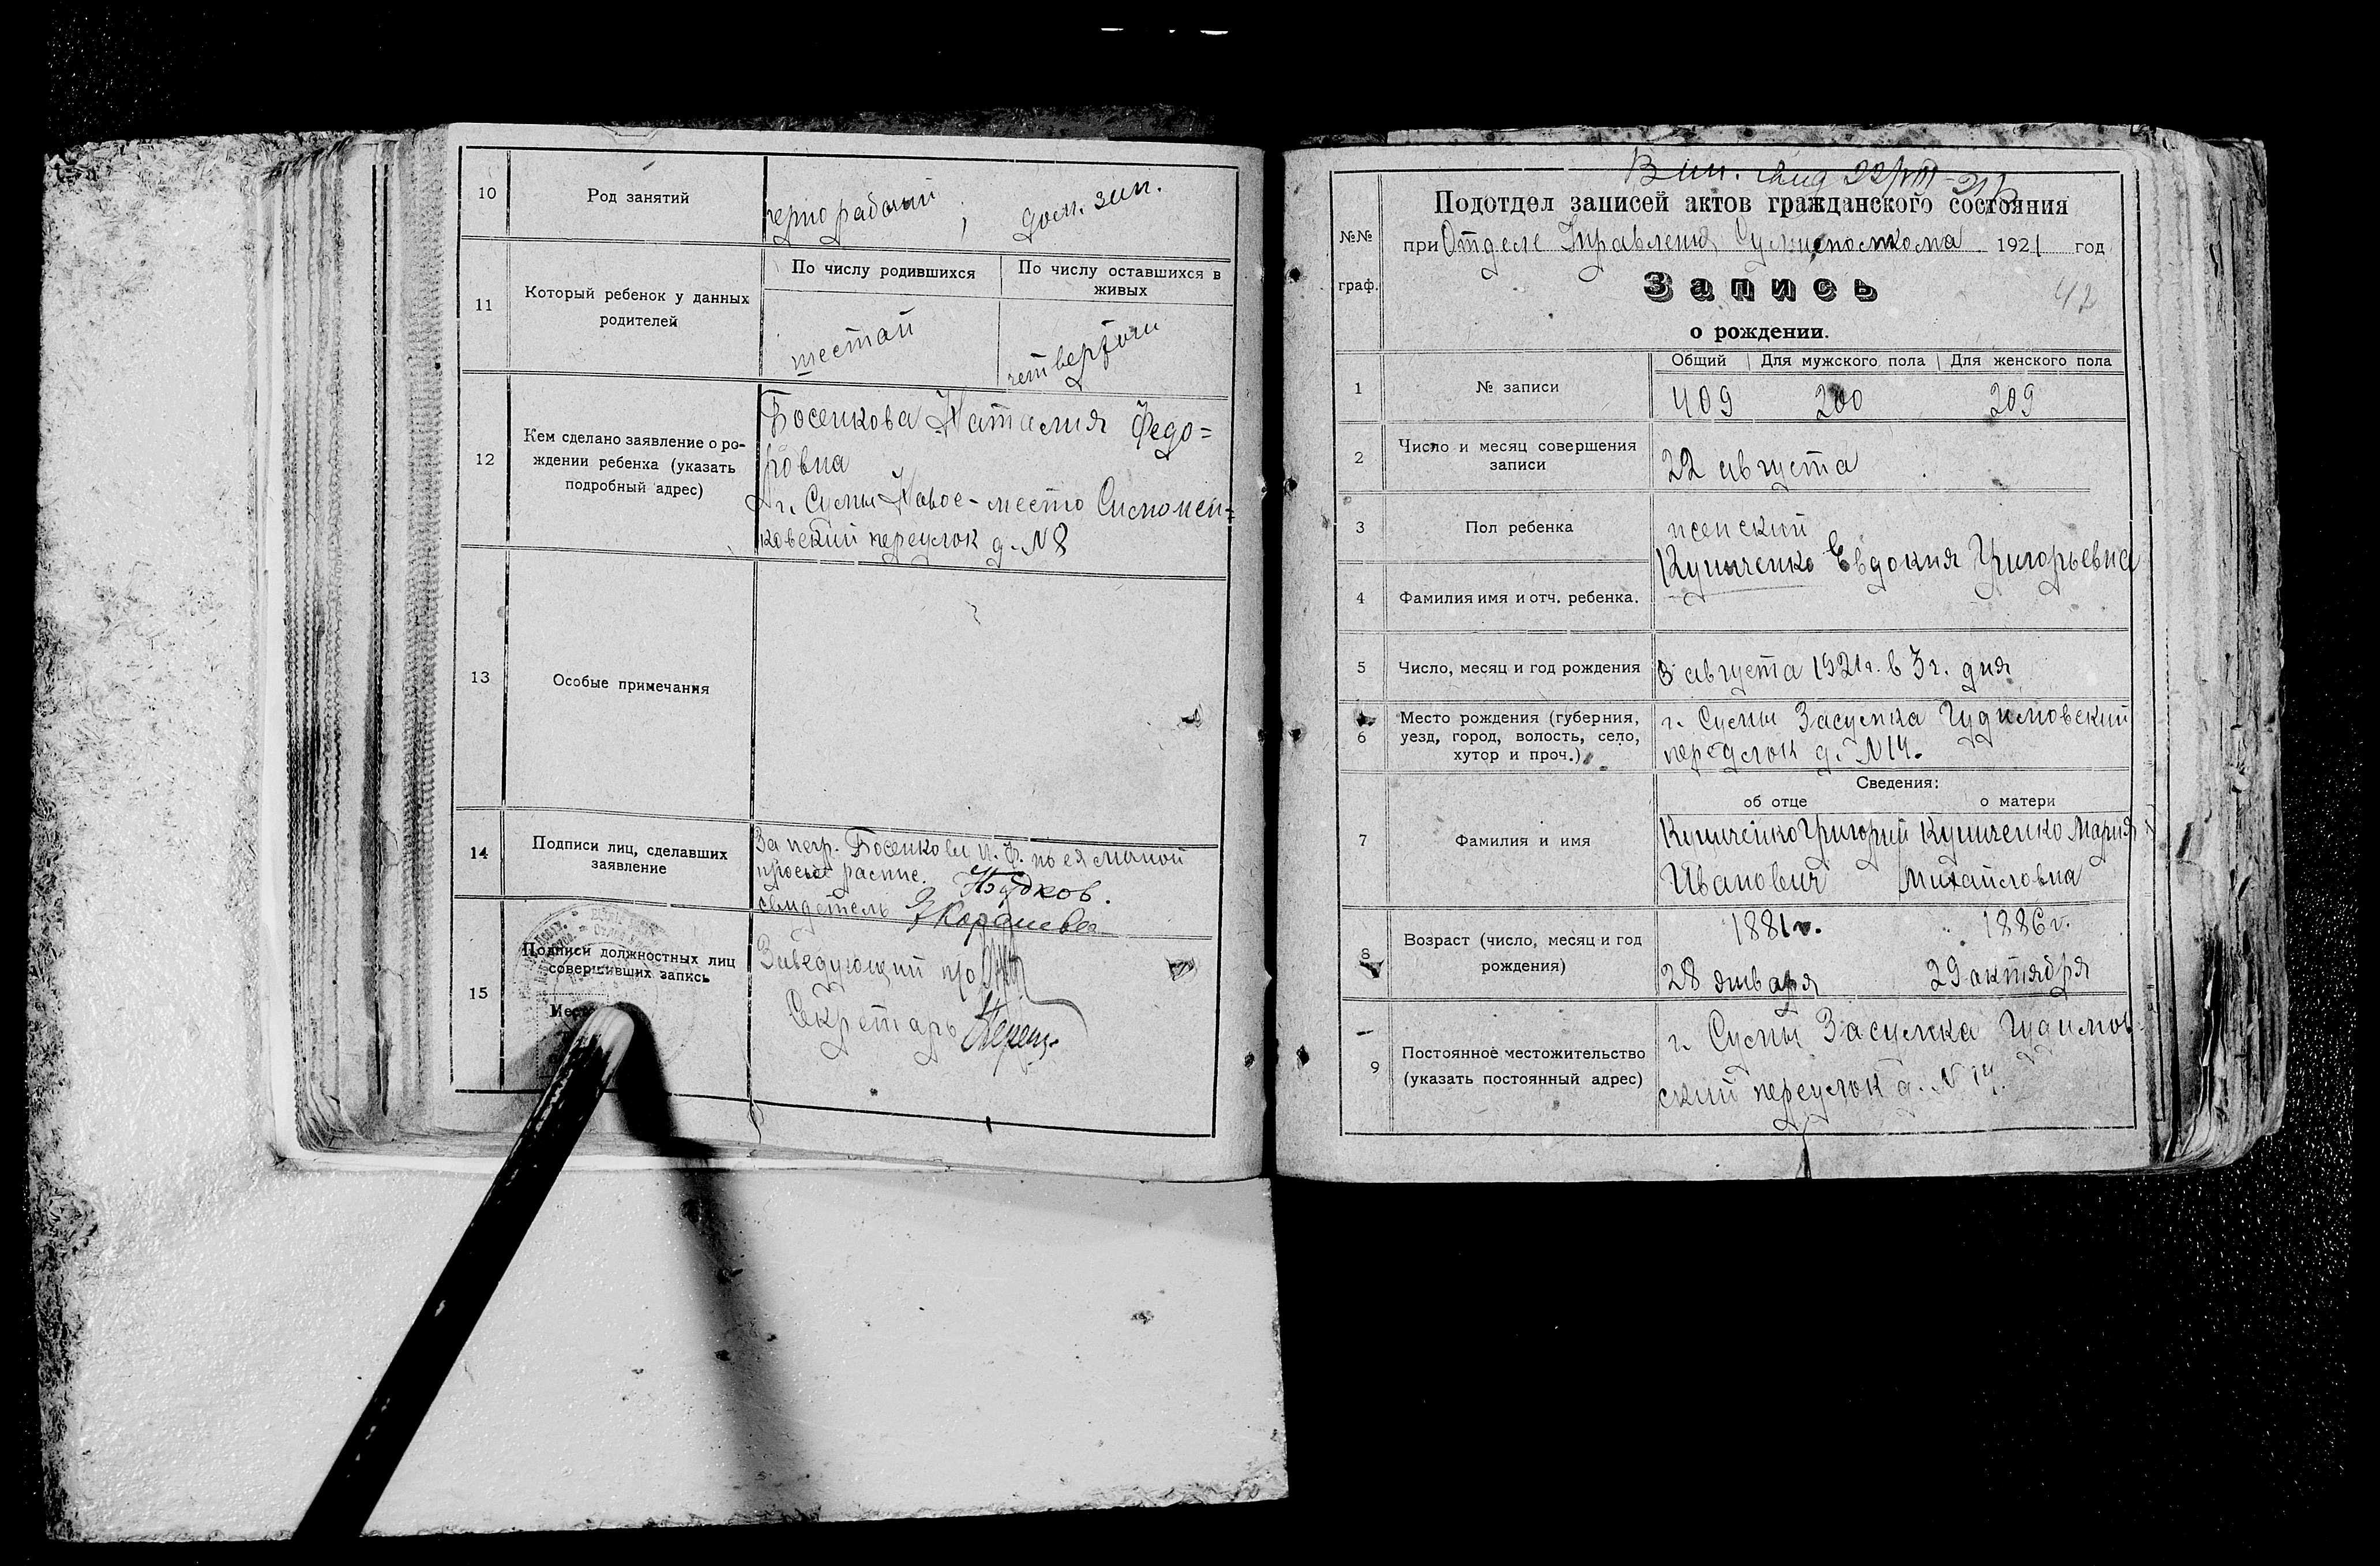 10
Род занятий
чернорабочий ; дом. зан.
11
Который ребенок у данных
родителей
По числу родившихся
По числу оставшихся в
живых
шестой
четвертый
12
Кем сделано заявление о ро-
ждении ребенка (указать
подробный адрес)
Босенкова Наталия Федо=
ровна
г. Сумы Новое-место
ковский переулок д. N 8
13
Особые примечания
14
Подписи лиц, сделавших
заявление
За негр. Босенкову Н. Ф. по ея личной
просьбе распис.
свидетель
15
Подписи должностных лиц
совершивших запись
Заведующий п/о
Секретарь
22/VIII-21
№№
граф.
Подотдел записей актов гражданского состояния
при Отделе Управления Сумисполкома 1921 год
Запись
42
о рождении.
1
№ записи
Общий Для мужского пола Для женского пола
409 200 209
2
Число и месяц совершения
записи
22 августа
3
Пол ребенка
женский
4
Фамилия имя и отч. ребенка.
Евдокия Григорьевна
5
Число, месяц и год рождения
августа 1921г. в 3 ч. дня
6
Место рождения (губерния,
уезд, город, волость, село,
хутор и проч.)
г. Сумы Засумка Гудимовский
переулок д. N 14.
Сведения:
об отце
о матери
7
Фамилия и имя
Григорий Мария
Иванович Михайловна
8
Возраст (число, месяц и год
рождения)
1881 г. 1886 г.
28 января 29 октября
9
Постоянное местожительство
(указать постоянный адрес)
г. Сумы Засумка Гудимов
ский переулок д. N 14.